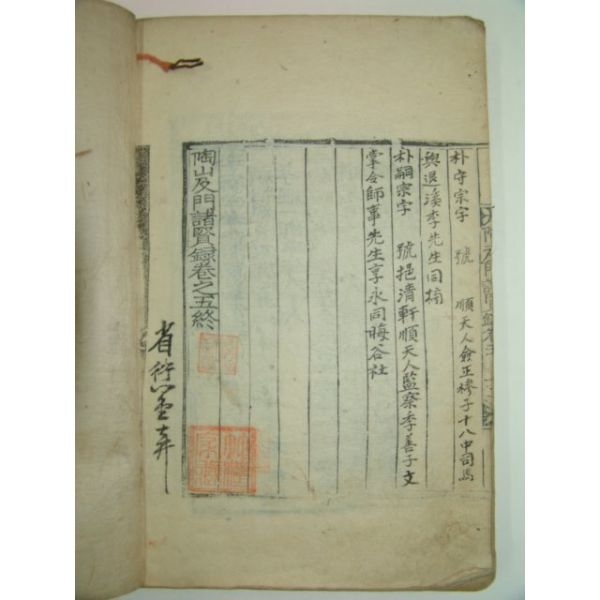 朴守宗字　號　順天人僉正穆子十八中司馬
與退溪李先生同榜
朴嗣宗字　號挹清軒順天人監察季善子文
掌令師事先生享永同晦谷社
陶山及門諸賢錄卷之五終